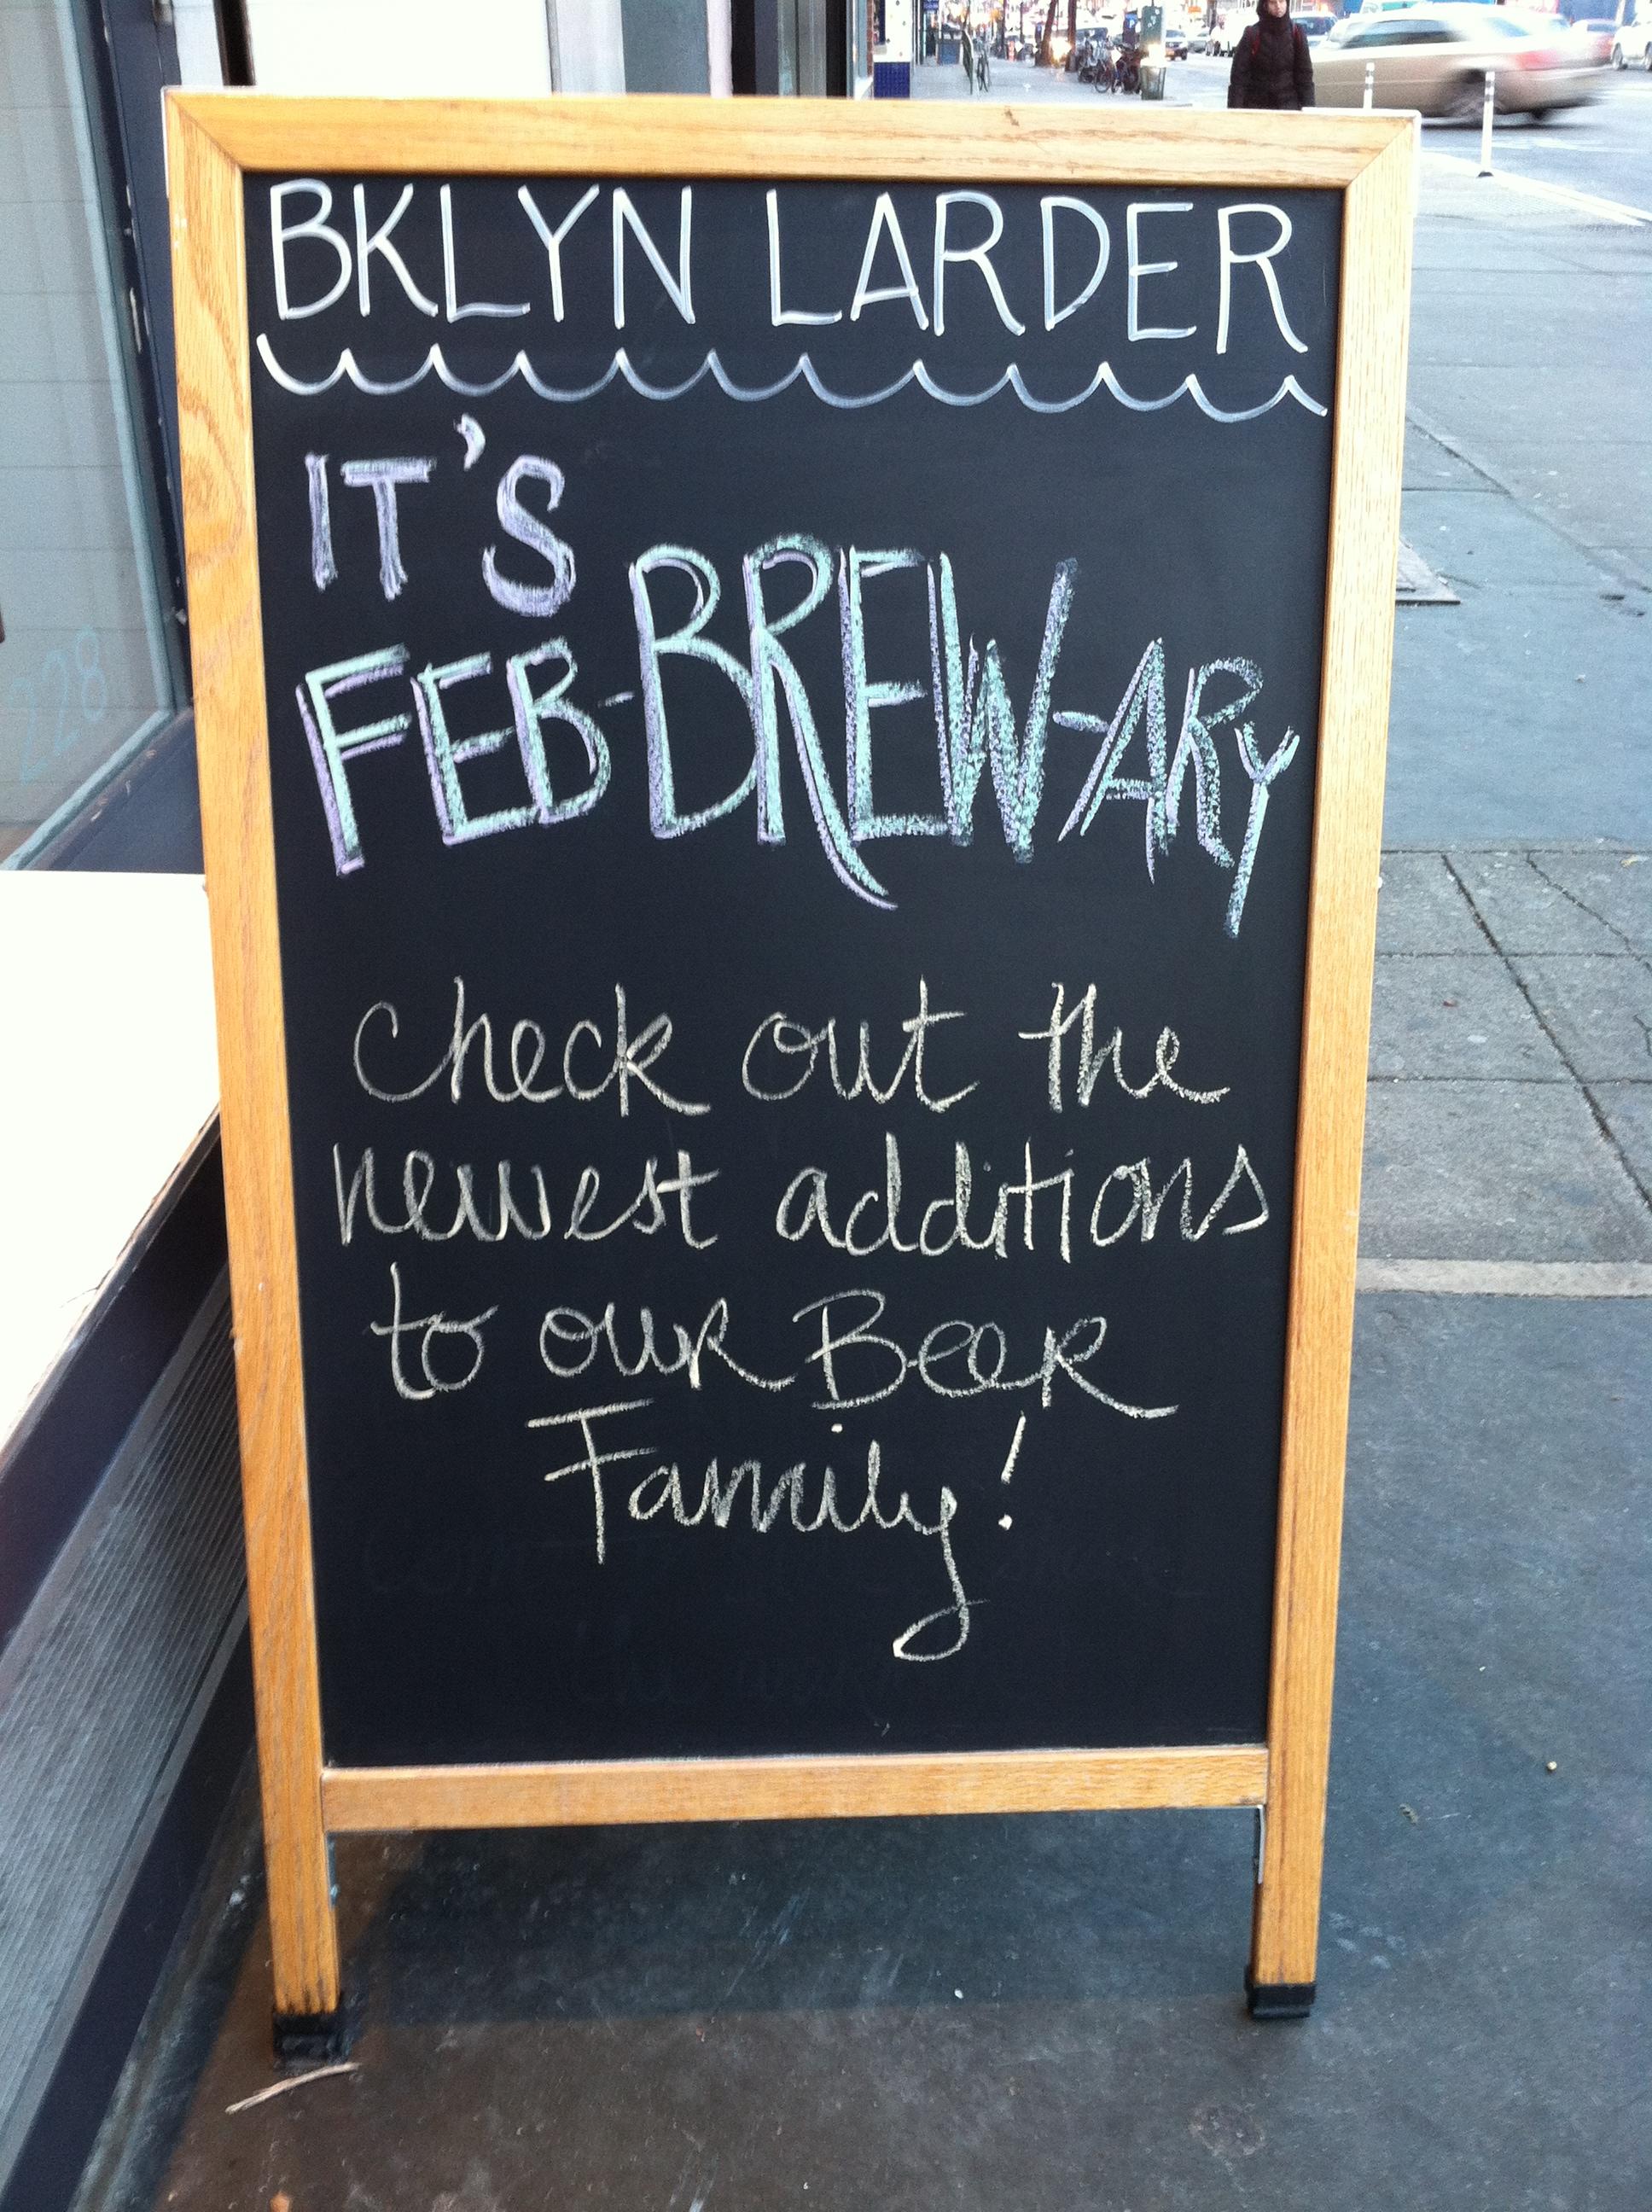 BKLYN LARDER
IT'S
FEB-BREW-ARY
check out the
newest additions
to our Beer
Family!
228